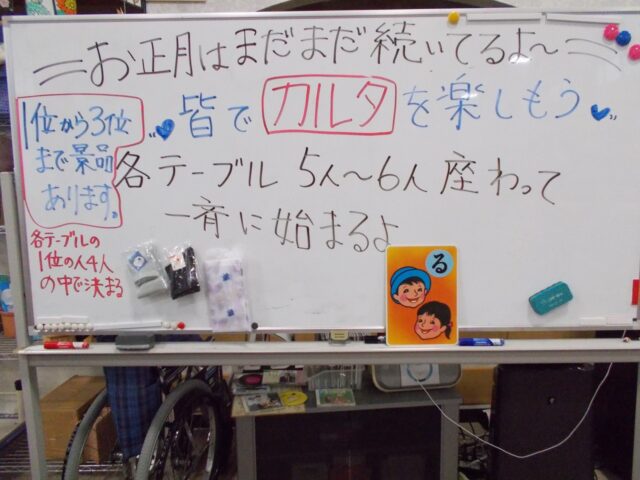 お正月はまだまだ続いてるよ～
皆でカルタを楽しもう
1位から3位
まで景品
あります。
各テーブル 5人～6人 座わって
一斉に始まるよ
各テーブルの
1位の人4人
の中で決まる
る